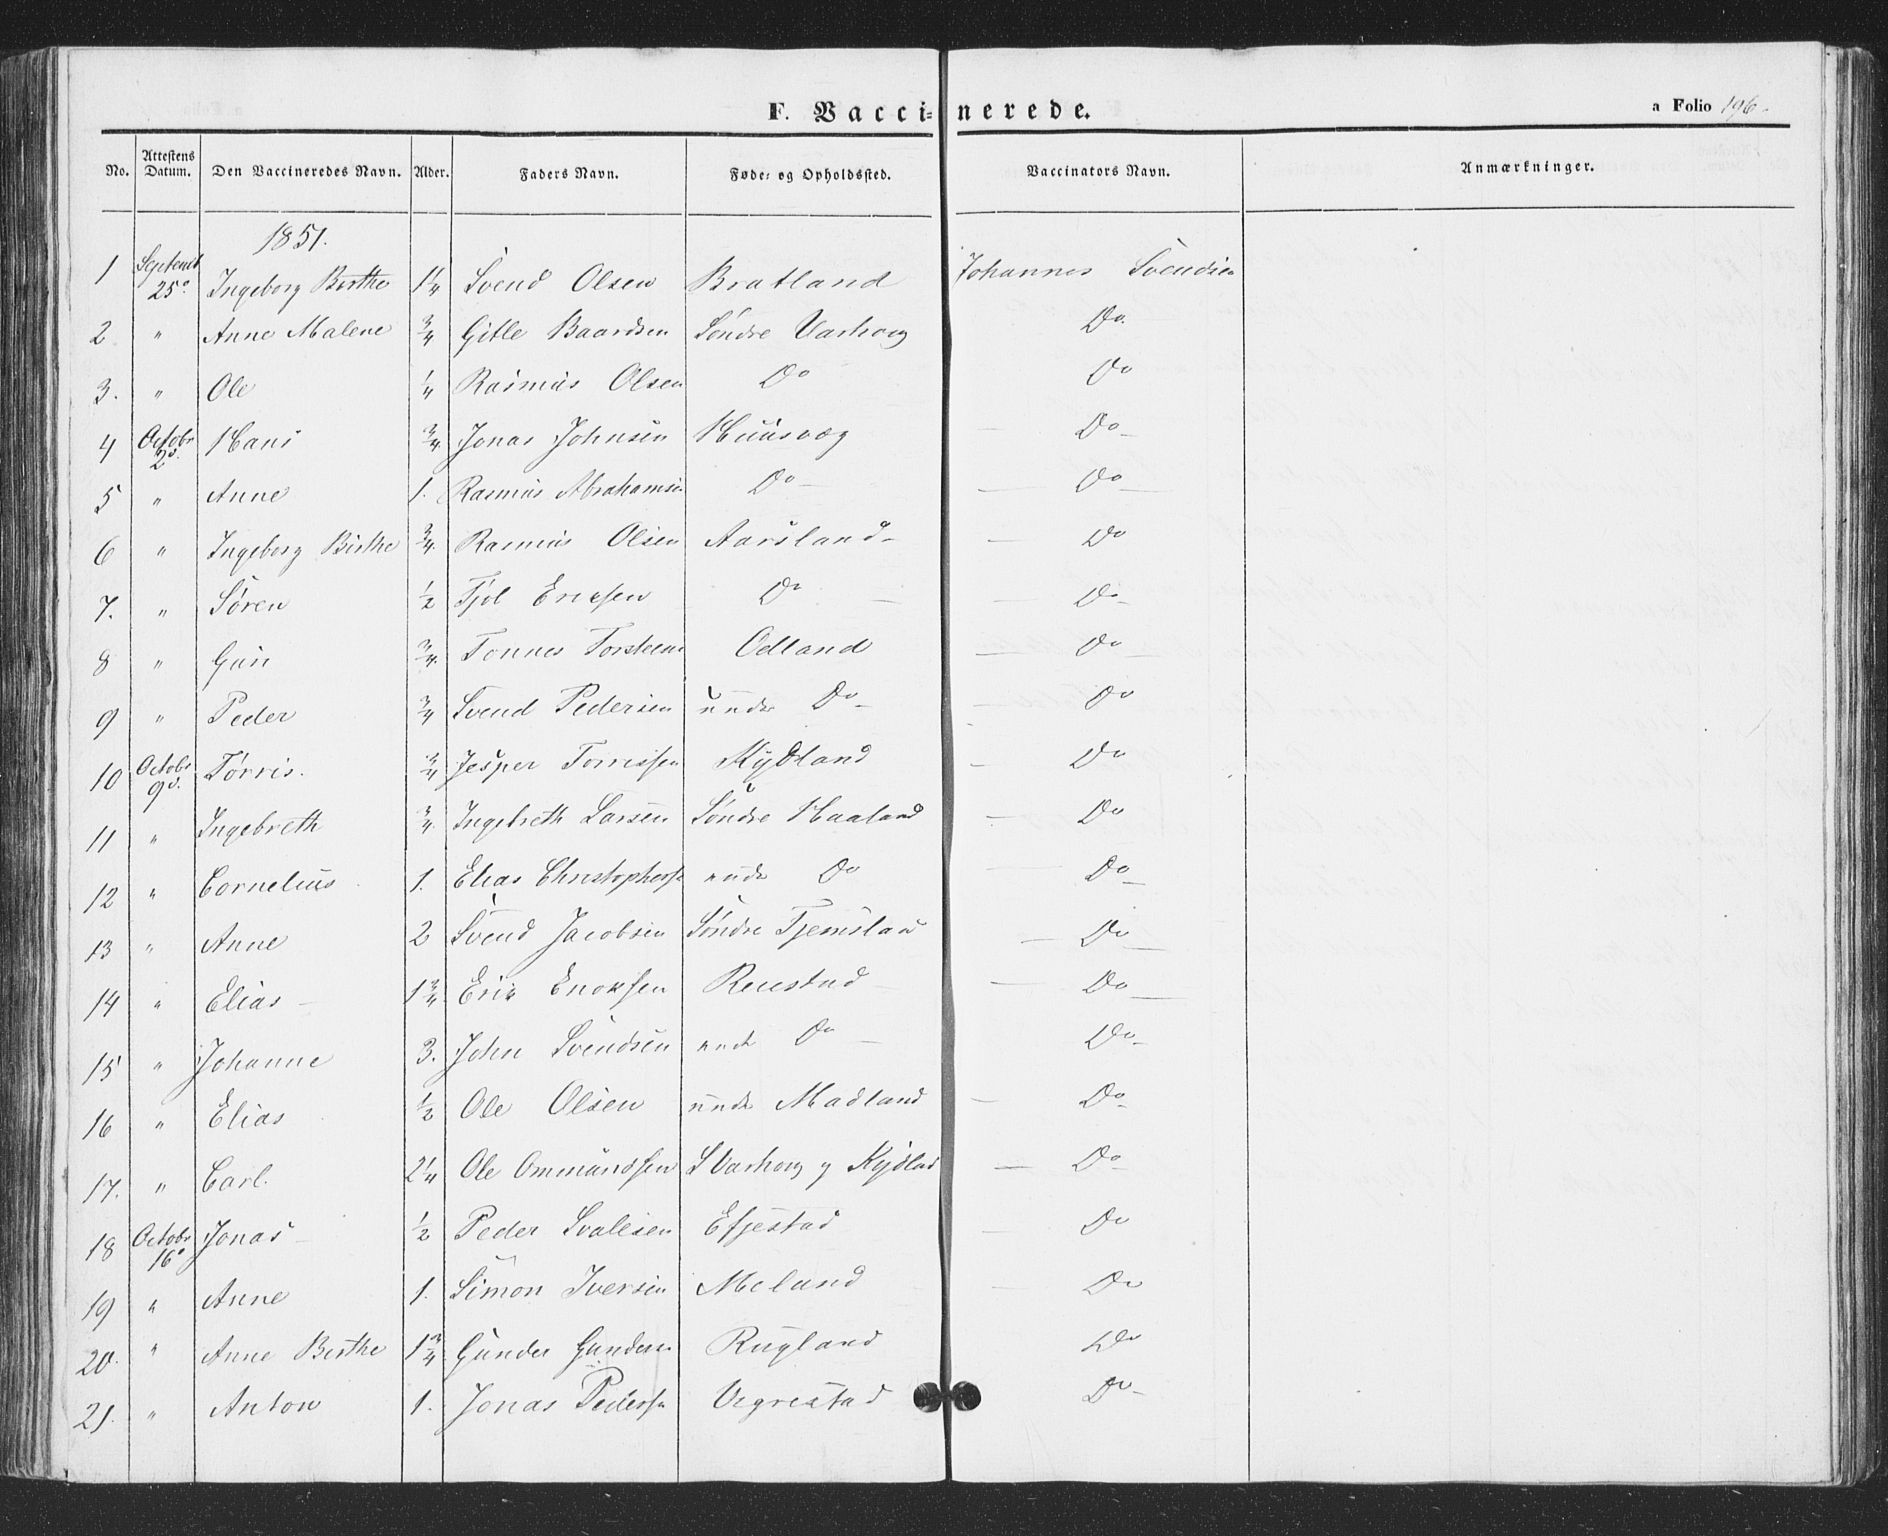 F. Vaccinerede.
a Folio 196.
No. Attestens Datum. Den Vaccineredes Navn. Alder. Faders Navn. Føde- og Opholdssted. Vaccinators Navn. Anmærkninger.
1851.
1 Septembr 25de Ingeborg Berthe 1¼ Svend Olsen Bratland Johannes Svendsen
2 " Anne Malene ¾ Gitle Baardsen Søndre Varhoug Do.
3. " Ole ¼ Rasmus Olsen Do Do
4 Octobr 2d. Hans ¾ Jonas Johnsen Huusvæg – Do –
5 " Anne 1. Rasmus Abrahamsen Do – – Do –
6 " Ingeborg Birthe ¾. Rasmus Olsen Aarsland – – Do
7. " Søren ½ Tjøl Ericksen Do – – Do –
8 " Guri ¾. Tonnes Torsteens Odland – Do –
9 " Peder ¾ Svend Pedersen under Do – Do
10 Octobr 9d. Tørris. ¾ Jesper Torrissen Kydland – Do
11 " Ingebreth ¾. Ingebreth Larsen Søndre Haaland – Do
12 " Cornelius 1. Elias Christophers unde Do – Do –
13 " Anne 2 Svend Jacobsen Søndre Tjemsland – Do –
14 " Elias – 1¾ Erik Enoksen Reestad – – Do –
15 " Johanne 3. John Svendsen unde Do – Do –
16 " Elias ½ Ole Olsen unde Madland – Do –
17. " Carl. 2¼ Ole Ommundsen S Varhoug og Kydland – Do –
18 Octobr 16d Jonas – ½ Peder Svalesen Efjestad – Do
19 " Anne 1. Simon Iversen Meland – Do
20. " Anne Berthe 1¾ Gunder Gunders Rugland Do
21. " Anton 1. Jonas Pedersn Vegrestad Do –